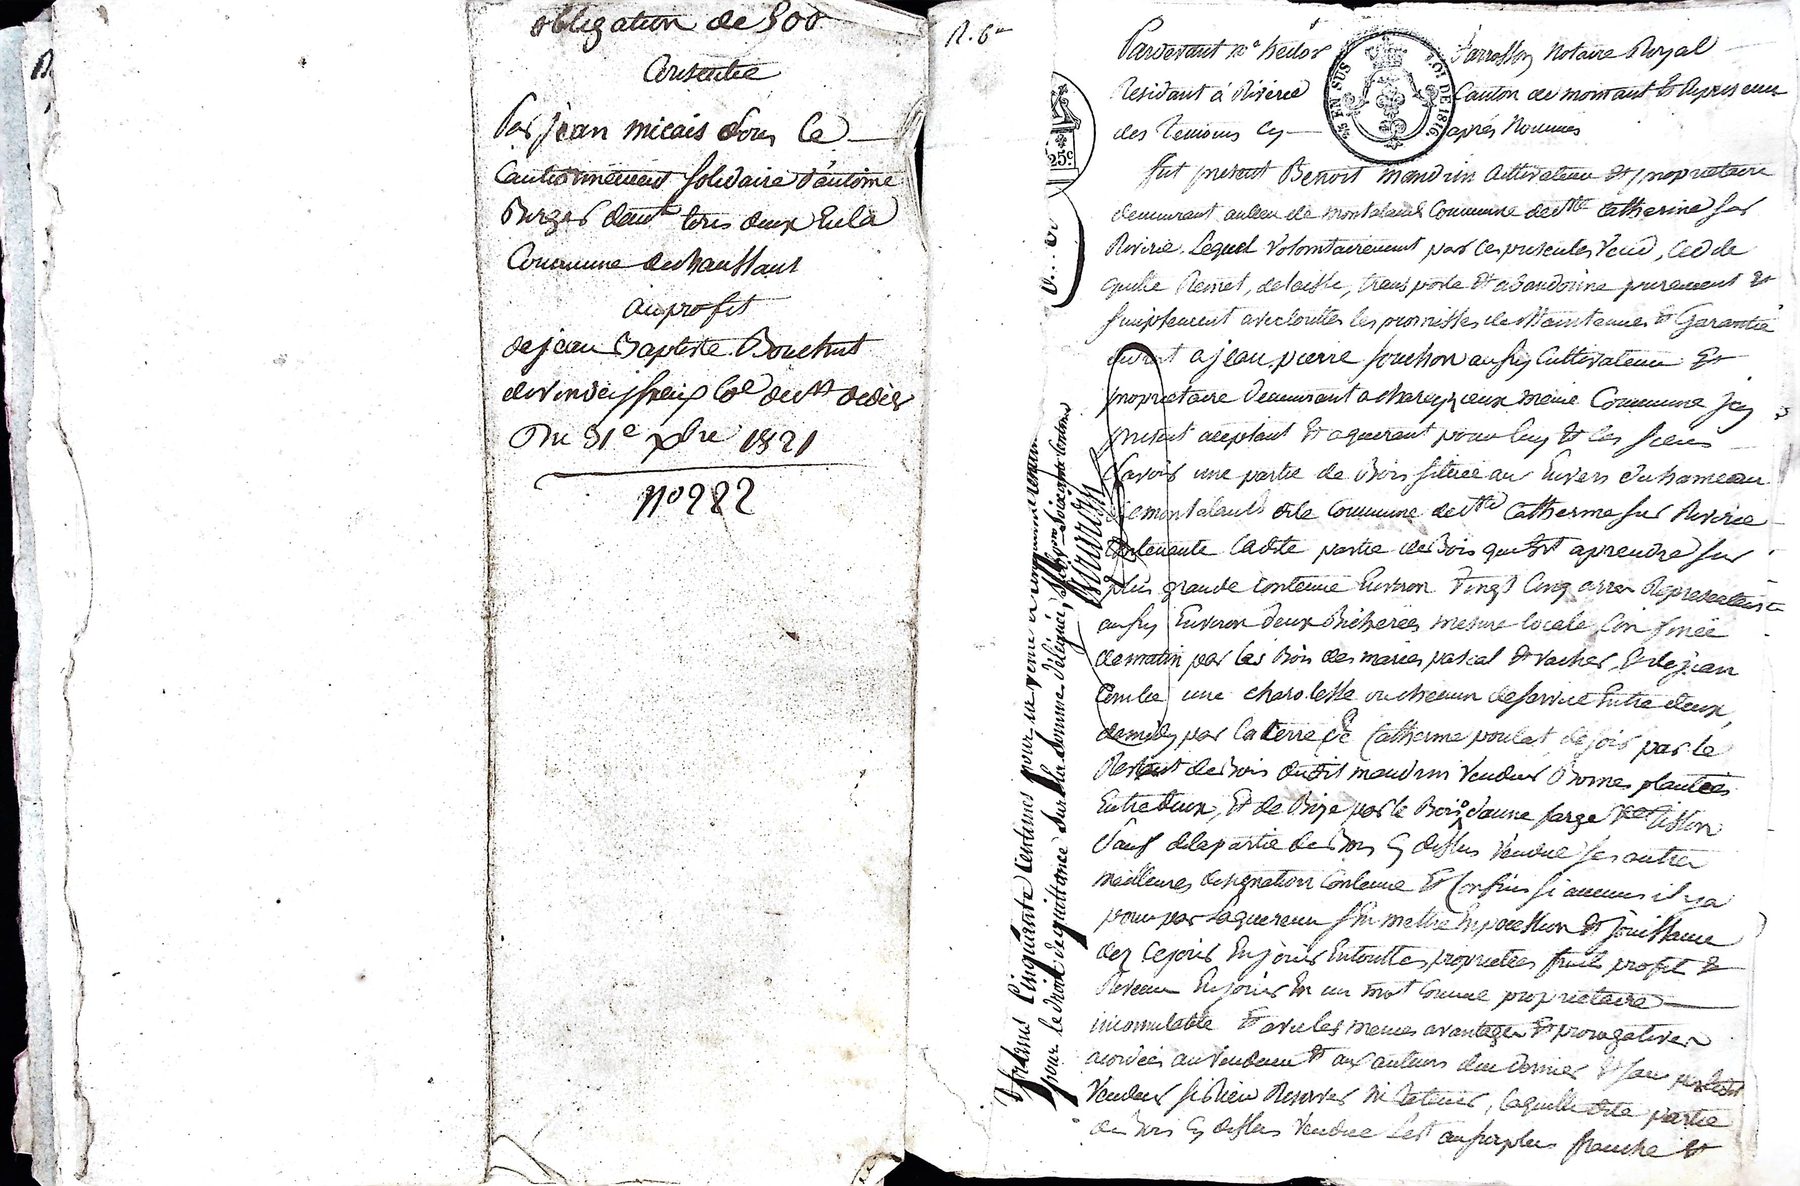 obligation de 500
Consentie
Par jean micais sous le
Cautionnement solidaire d'antoine
Burger demt tous deux En la
Commune de chaussant
au profit
de jean Baptiste Bouchut
de st didier
Du 31e xbre 1821
no 222
R. 6
Pardevant Farrossoy Notaire Royal
Residant à Riverie Canton de mornant En presence
des Temoins Cy après Nommés
EN SUS LOI DE 1816
25c
fut present Benoit mandrin Cultivateur et proprietaire
demurant au lieu de Commune de ste Catherine sur
Riverie Lequel Volontairement par ces presentes Vend, cede
quitte Remet, delaisse, transporte et abandonne purement et
simplement avec touttes les promesses de Maintenue et Garantie
a jean pierre souchon aussy Cultivateur Et
proprietaire demurant a meme Commune jcy
present aceptant et aquerant pour luy et les siens
Savoir une partie de Bois située au Envers du hameau
de dite Commune de ste Catherine sur Riverie
Contenante Ladite partie de Bois qui est a prendre sur
plus grande Contenue Environ Vingt Cinq ares Representant
aussy Environ deux Bicherées mesure locale, Confinée
de matin par les Bois des maries pascal et vacher, Et de jean
une charolesse ou chemin de service Entre deux,
de midy par la terre de Catherine poulat, de soir par le
Restant de Bois dudit mandrin Vendeur Bornes plantées
Entre deux, Et de Bize par le Bois d'anne farge Tisson
Sauf de la partie de Bois Cy dessus Vendue ses autres
meilleures designation Contenue Et Confins si aucuns il y a
pour par Laquereur s'en mettre En possession et Jouissance
dez ce jour En jouir En touttes proprietées fruits profit et
Revenu En jouir En un mot Comme proprietaire
incomutable et avec les memes avantages Et prerogatives
acordées au Vendeur et aux auteurs de ce dernier
Vendeur si Rien Reserver Ni Retenir, laquelle dite partie
de Bois Cy dessus Vendue Est au surplus franche Et
francs Cinquante Centimes pour
pour le droit de quittance Sur la Somme déléguée,
Mandrin